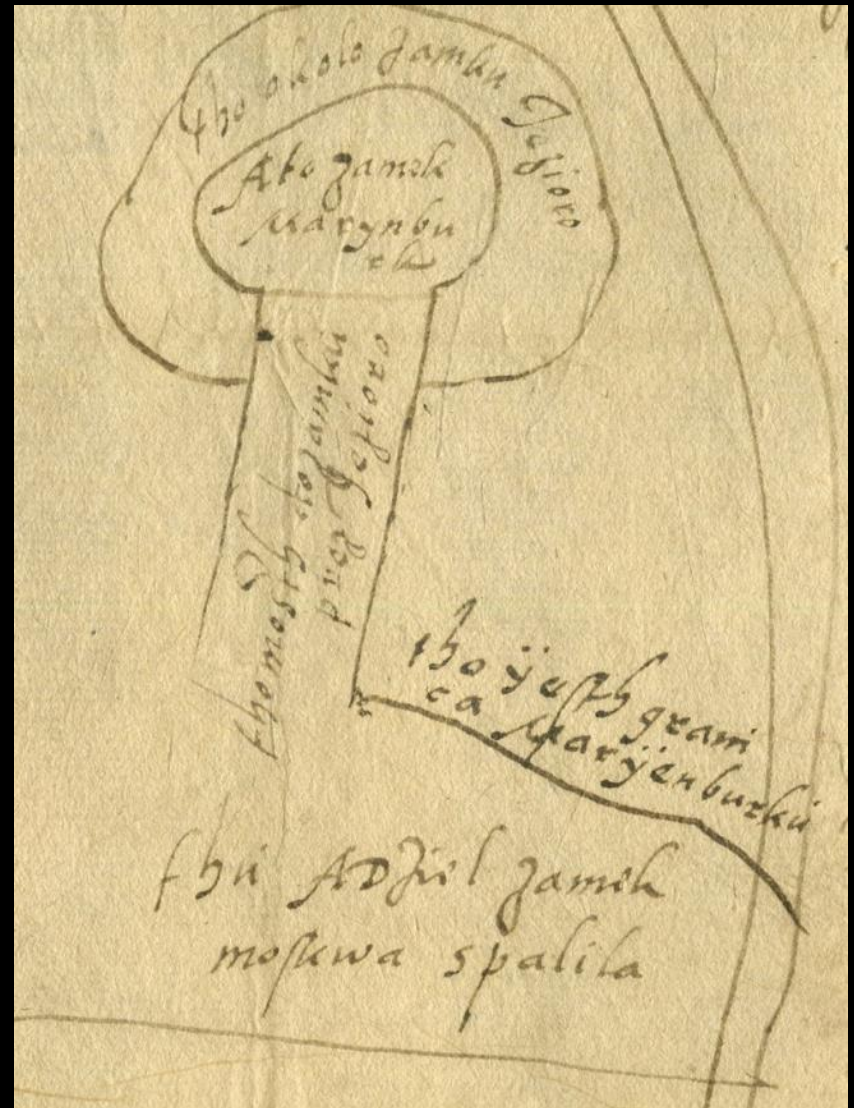 tho okolo zamku Jezioro
A to zamek
Marynbu
rk
tho mosth do zamku
przez Jezioro
tho ÿesth grani
ca Marÿenburku
thu ADziel zamek
moskwa spalila